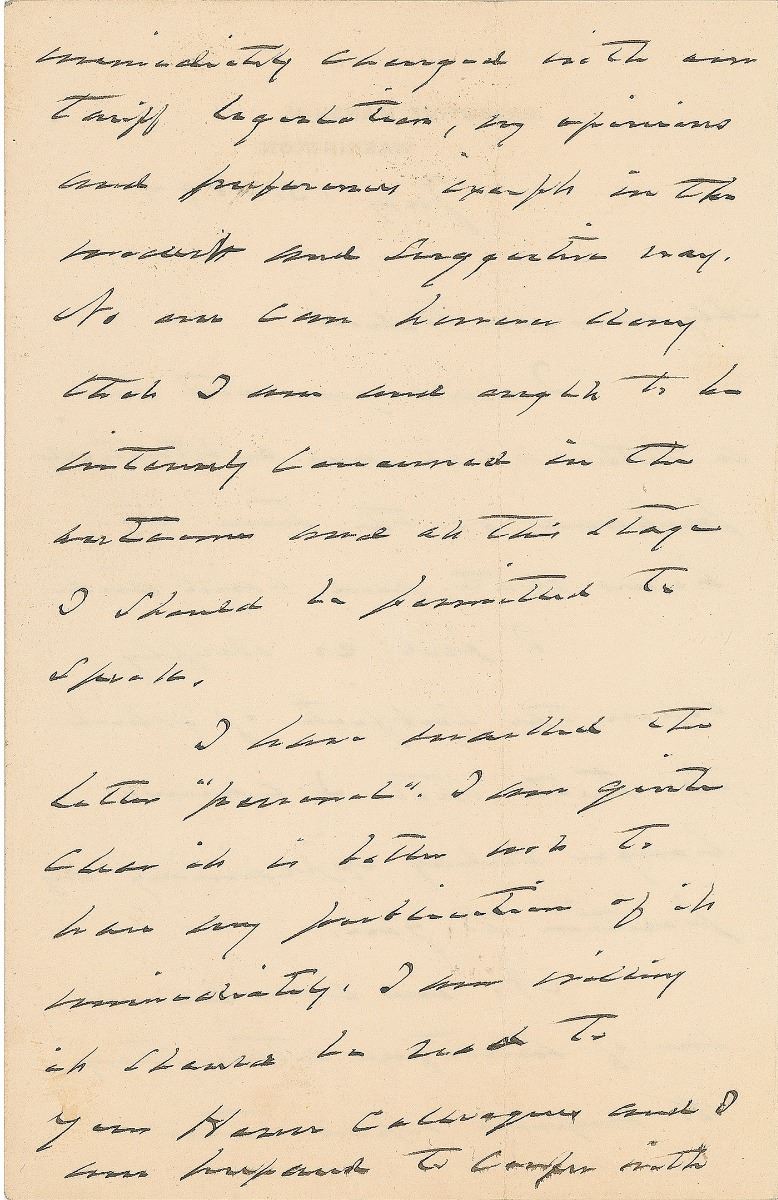 immediately charged with our
tariff legislation, my opinions
and preferences except in the
modest and suggestive way.
No one can however deny
that I am and ought to be
intensely concerned in the
outcome and at this stage
I should be permitted to
speak.
I have marked the
letter "personal". I am quite
clear it is better not to
have any publication of it
immediately. I am willing
it should be read to
your House Colleagues and I
am prepared to confer with